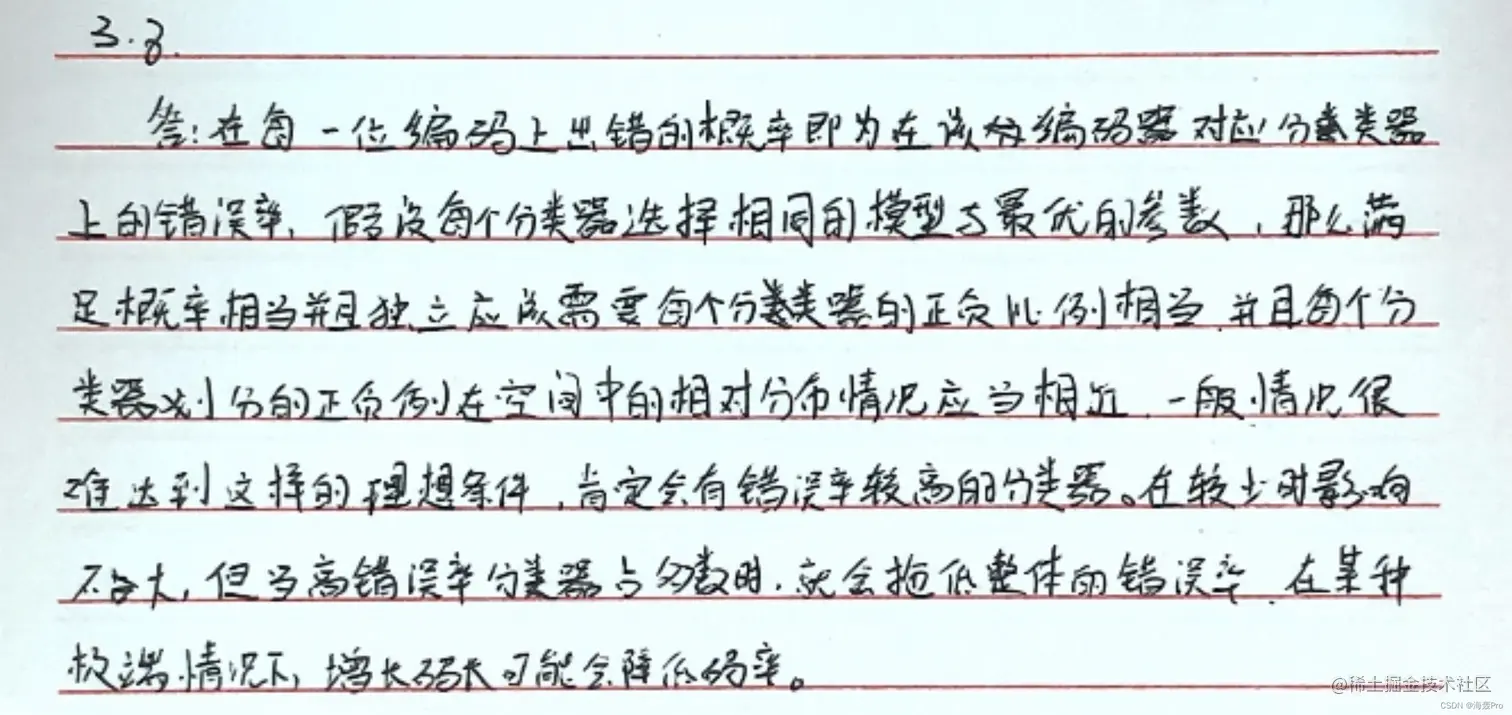 3.8.
答：在每一位编码上出错的概率即为在该位编码器对应分类器
上的错误率，假设每个分类器选择相同的模型与最优的参数，那么满
足概率相当并且独立应该需要每个分类器的正负比例相当，并且每个分
类器划分的正负例在空间中的相对分布情况应当相近，一般情况很
难达到这样的理想条件，肯定会有错误率较高的分类器。在较少时影响
不大，但当高错误率分类器占多数时，就会拖低整体的错误率，在某种
极端情况下，增长码长可能会降低码率。
@稀土掘金技术社区
CSDN @海轰Pro